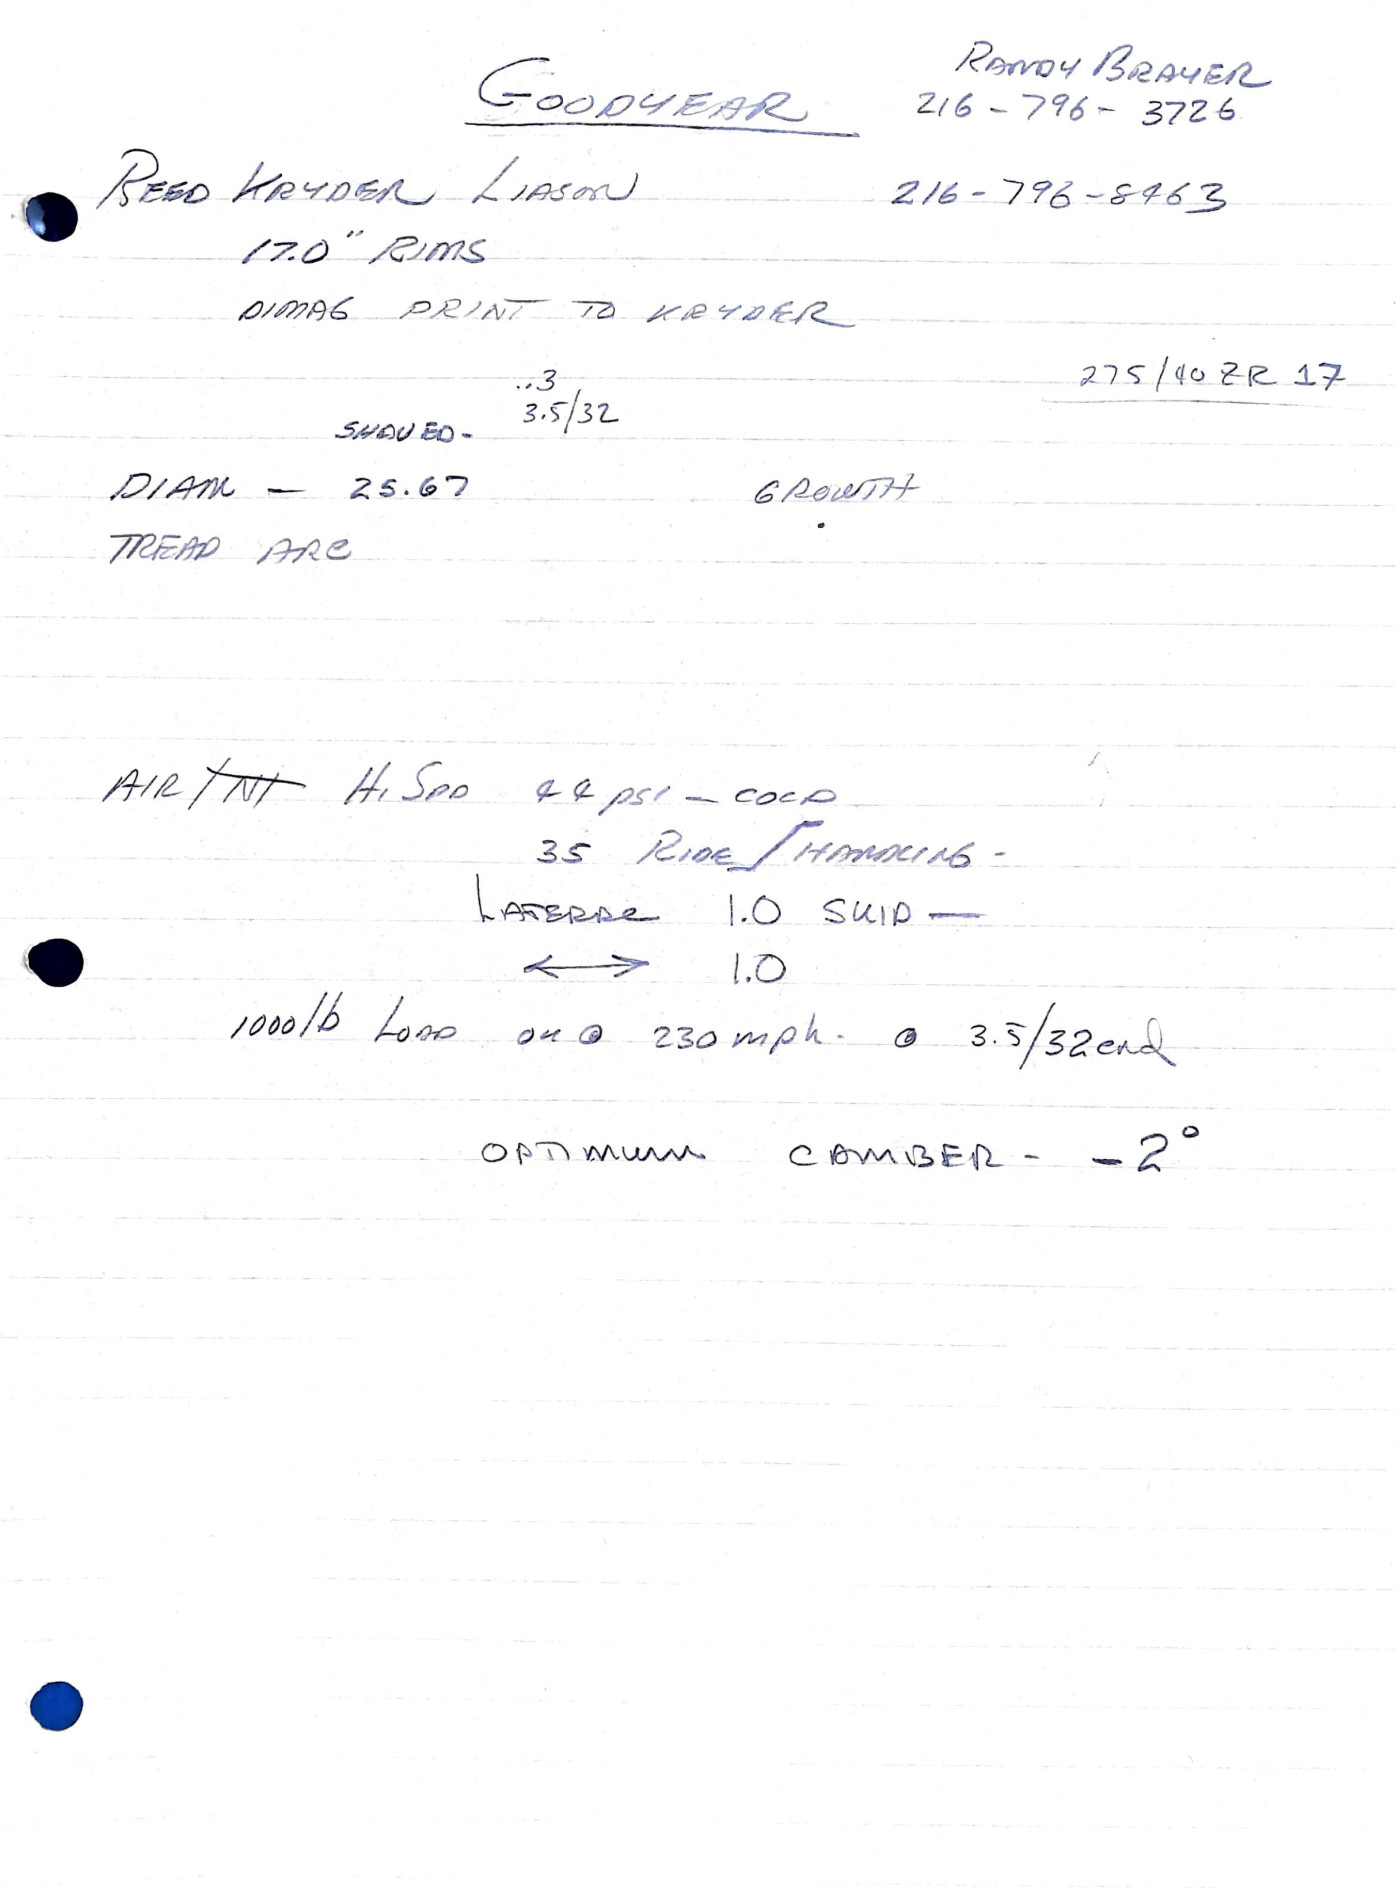 GOODYEAR
RANDY BRAYER
216-796-3726
REED KRYDER LIASON 216-796-8463
17.0" RIMS
DIMAG PRINT TO KRYDER
..3
275/40 ZR 17
3.5/32
SHAVED-
DIAM - 25.67 GROWTH
TREAD ARC
AIR HI SPD 44 psi - COLD
35 RIDE / HANDLING -
LATERAL 1.0 SKID -
↔ 1.0
1000 lb LOAD OK @ 230 mph. @ 3.5/32 end
OPTIMUM CAMBER - -2°